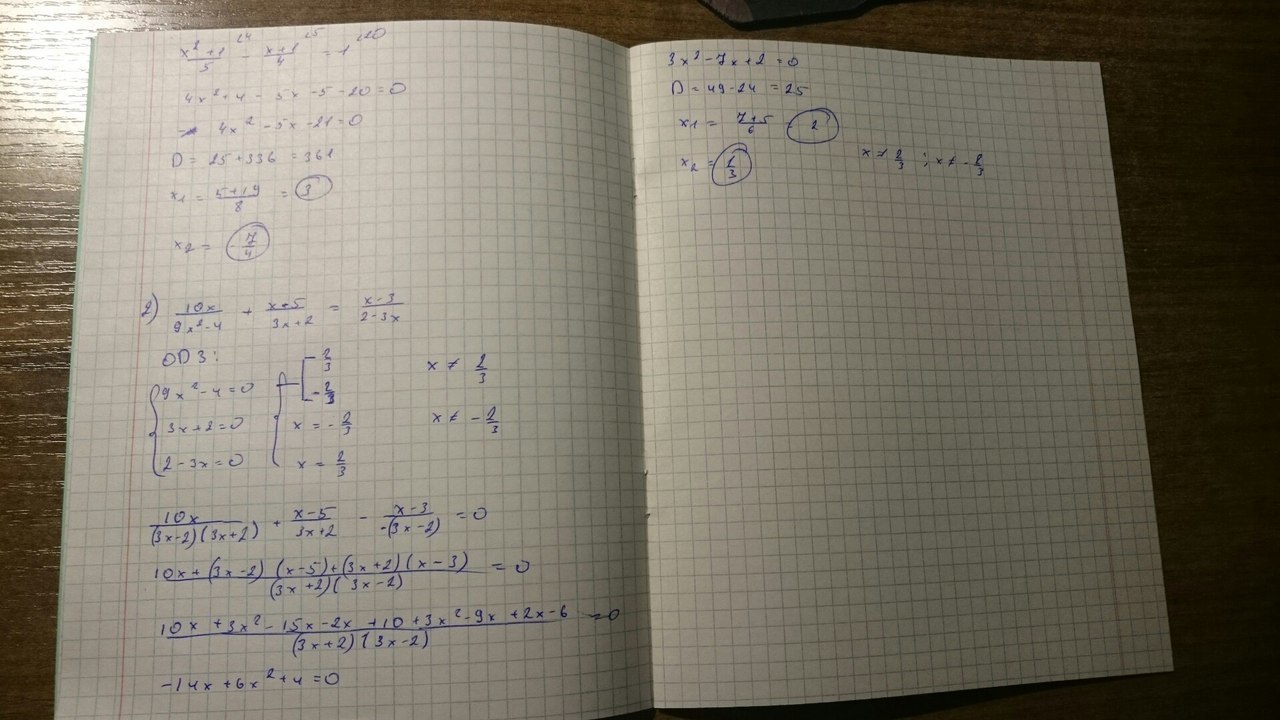 x²+1/5 ⁽⁴ - x+1/4 ⁽⁵ = 1 ⁽²⁰
4x²+4 - 5x -5 -20 = 0
4x² -5x -21 = 0
D = 25+336 = 361
x1 = 5+19/8 = 3
x2 = -7/4
2) 10x/9x²-4 + x-5/3x+2 = x-3/2-3x
ОДЗ:
9x²-4=0 -2/3 x ≠ 2/3
-2/3
3x+2=0 x = -2/3 x ≠ -2/3
2-3x=0 x = 2/3
10x/(3x-2)(3x+2) + x-5/3x+2 - x-3/-(3x-2) = 0
10x+(3x-2)(x-5)+(3x+2)(x-3)/(3x+2)(3x-2) = 0
10x+3x²-15x-2x+10+3x²-9x+2x-6/(3x+2)(3x-2) =0
-14x+6x²+4=0
3x²-7x+2=0
D = 49-24 = 25
x1 = 7+5/6 = 2
x2 = 1/3 x ≠ 2/3 ; x ≠ -2/3